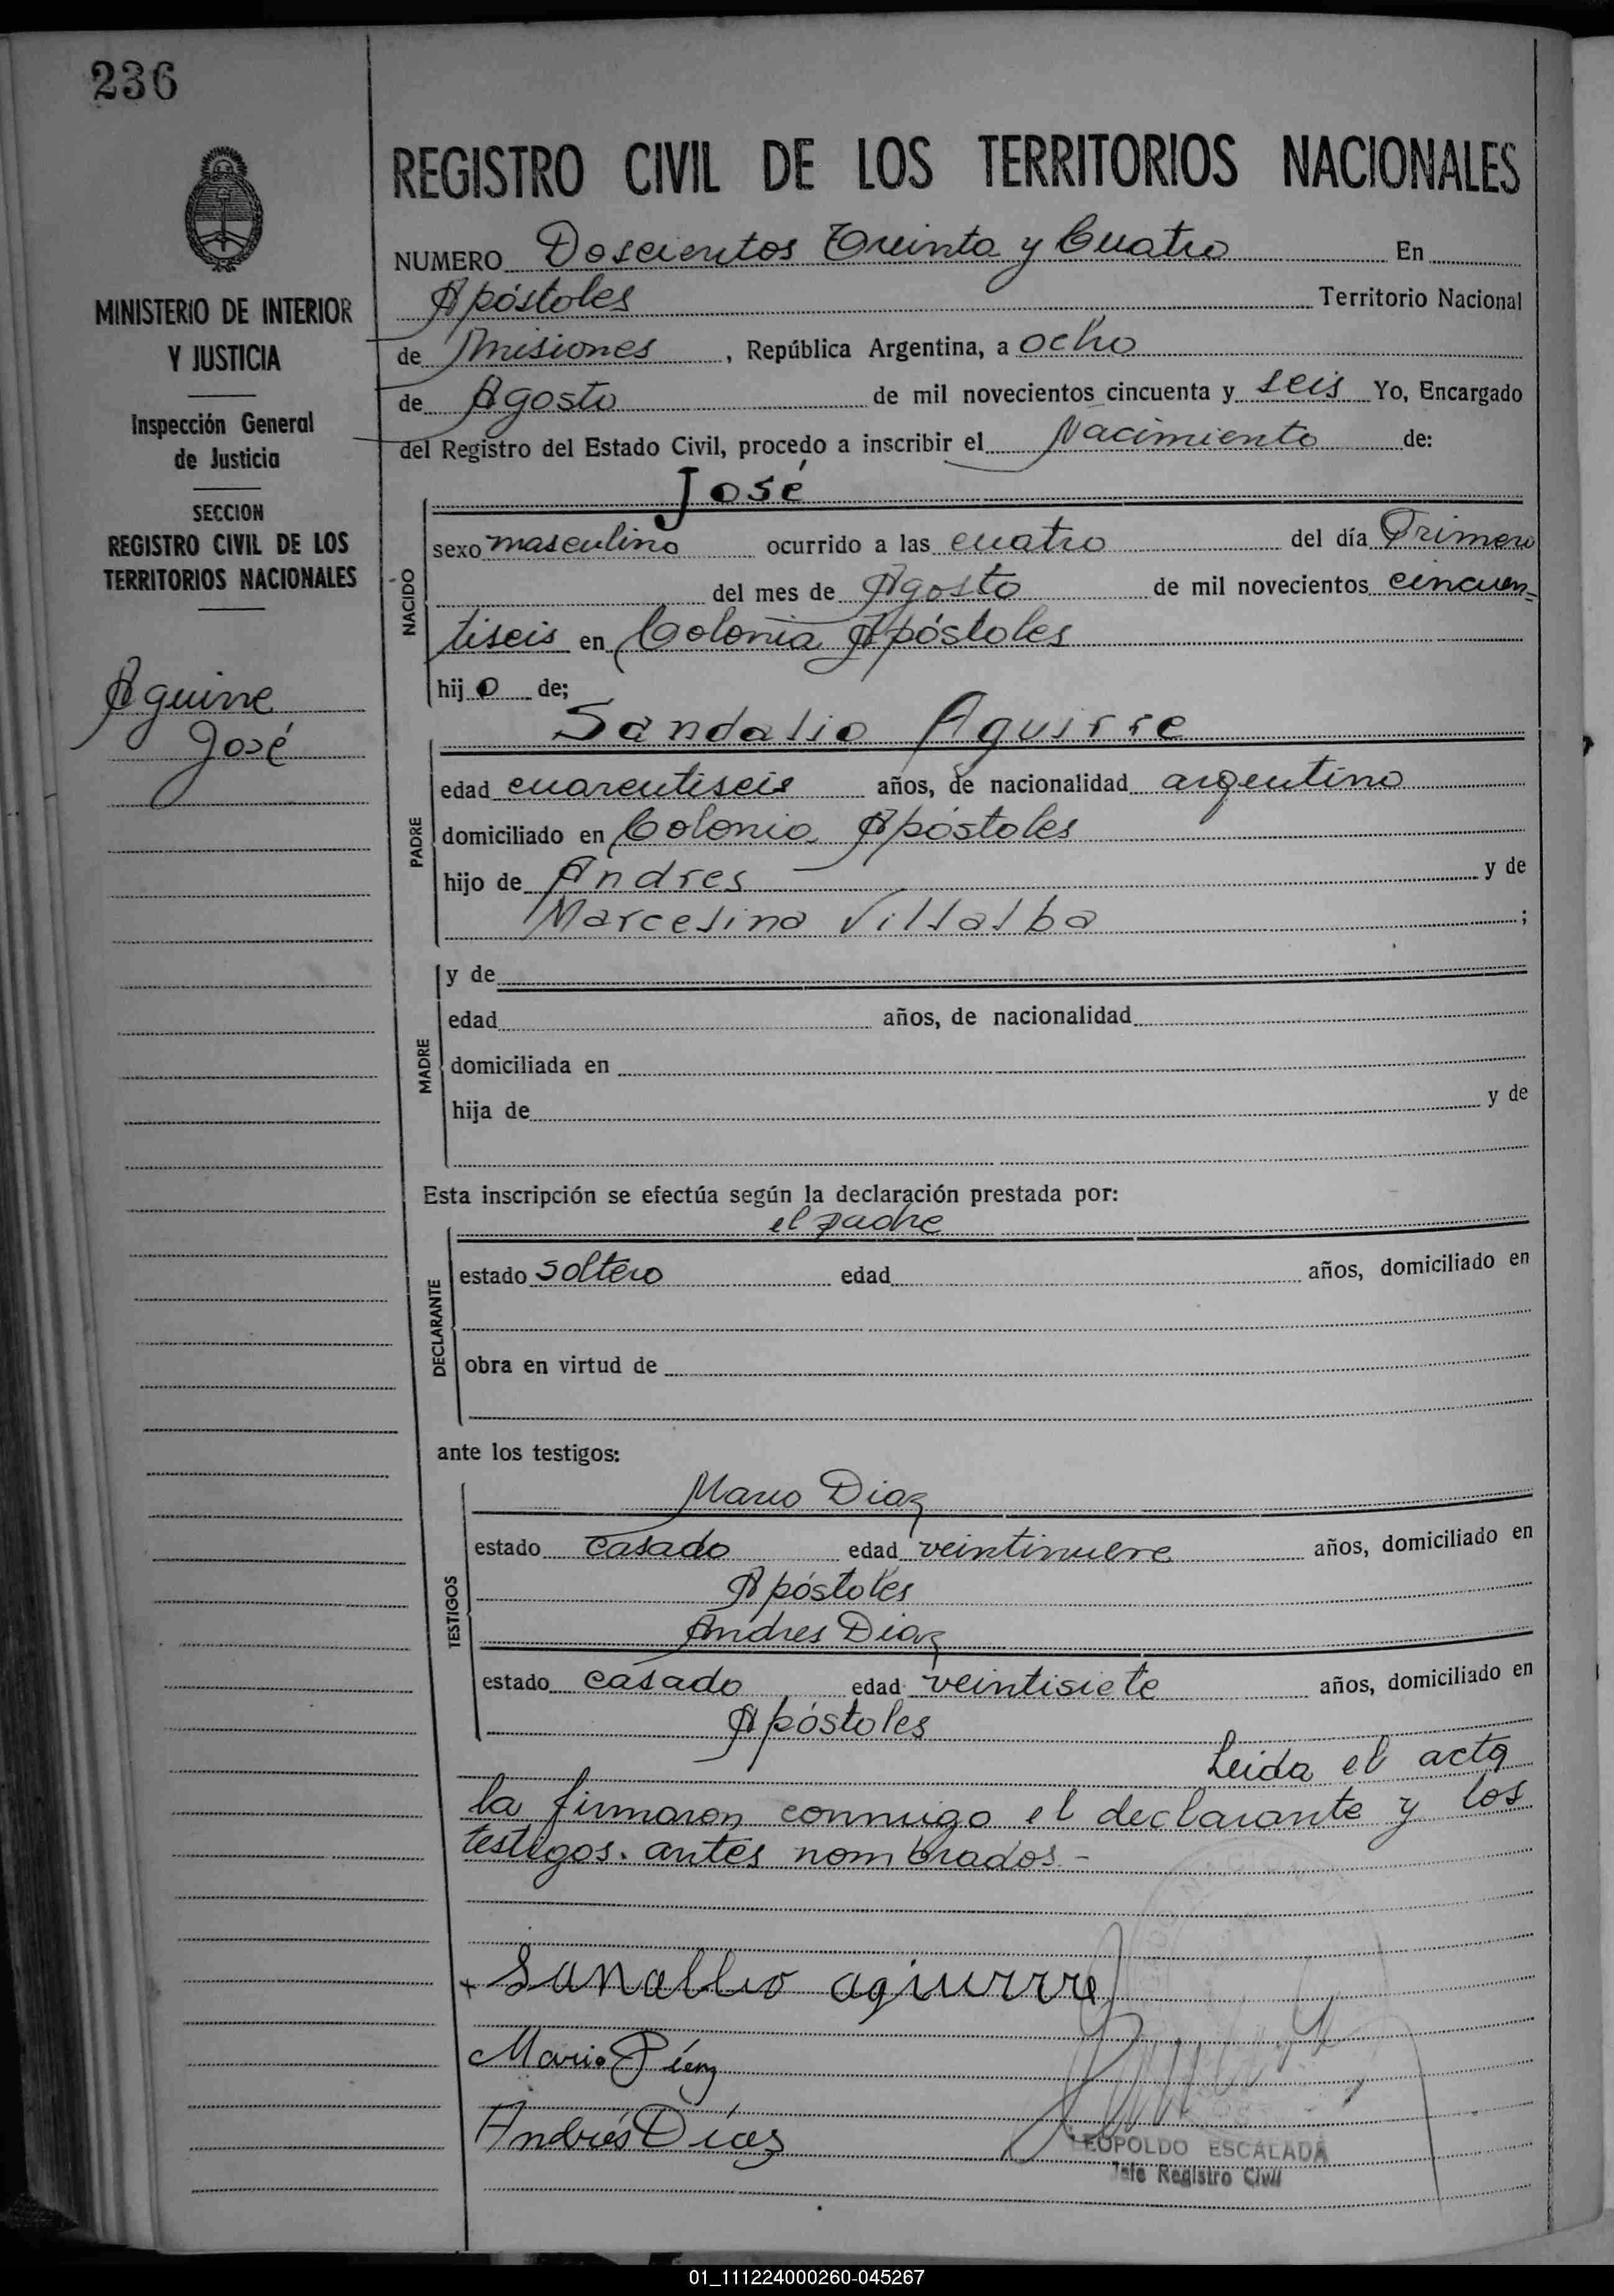 236
MINISTERIO DE INTERIOR
Y JUSTICIA
Inspección General
de Justicia
SECCION
REGISTRO CIVIL DE LOS
TERRITORIOS NACIONALES
Aguirre
José
REGISTRO CIVIL DE LOS TERRITORIOS NACIONALES
NUMERO Doscientos Treinta y Cuatro En
Apóstoles Territorio Nacional
de Misiones, República Argentina, a ocho
de Agosto de mil novecientos cincuenta y seis Yo, Encargado
del Registro del Estado Civil, procedo a inscribir el Nacimiento de:
José
NACIDO
sexo masculino ocurrido a las cuatro del día Primero
del mes de Agosto de mil novecientos cincuen=
tiseis en Colonia Apóstoles
hijo de;
Sandalio Aguirre
PADRE
edad cuarentiseis años, de nacionalidad argentino
domiciliado en Colonia Apóstoles
hijo de Andres y de
Marcelina Villalba;
MADRE
y de
edad años, de nacionalidad
domiciliada en
hija de y de
Esta inscripción se efectúa según la declaración prestada por:
el padre
DECLARANTE
estado soltero edad años, domiciliado en
obra en virtud de
ante los testigos:
TESTIGOS
Mario Diaz
estado casado edad veintinueve años, domiciliado en
Apóstoles
Andres Diaz
estado casado edad veintisiete años, domiciliado en
Apóstoles
Leida el acta
la firmaron conmigo el declarante y los
testigos. antes nombrados -
+ Sanallio agiurrre
Mario Díaz
Andrés Díaz
LEOPOLDO ESCALADA
Jefe Registro Civil
01_111224000260-045267